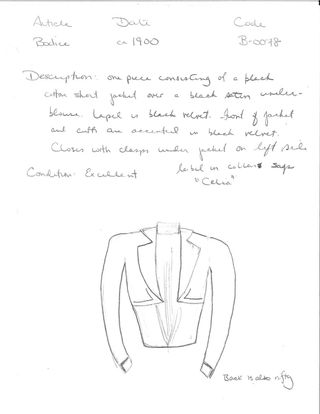 Article Date Code
Bodice ca 1900 B-0078
Description: one piece consisting of a black
cotton short jacket over a black satin under-
blouse. Lapel is black velvet. Front of jacket
and cuffs are accented in black velvet.
Closes with clasps under jacket on left side
label in collar says
Condition: Excellent "Celia"
Back is also nifty